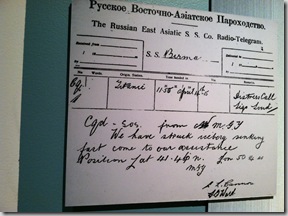 Русское Восточно-Азіатское Пароходство.
The Russian East Asiatic S. S. Co. Radio-Telegram.
S. S. "Birma".
Words. Origin. Station. Time handed in.
Titanic 11:50 April Distress Call
Sigs Loud
Cqd - Sos. from M G Y
We have struck iceberg sinking
fast come to our assistance
Position Lat 41.46 n. Lon 50.
MGY